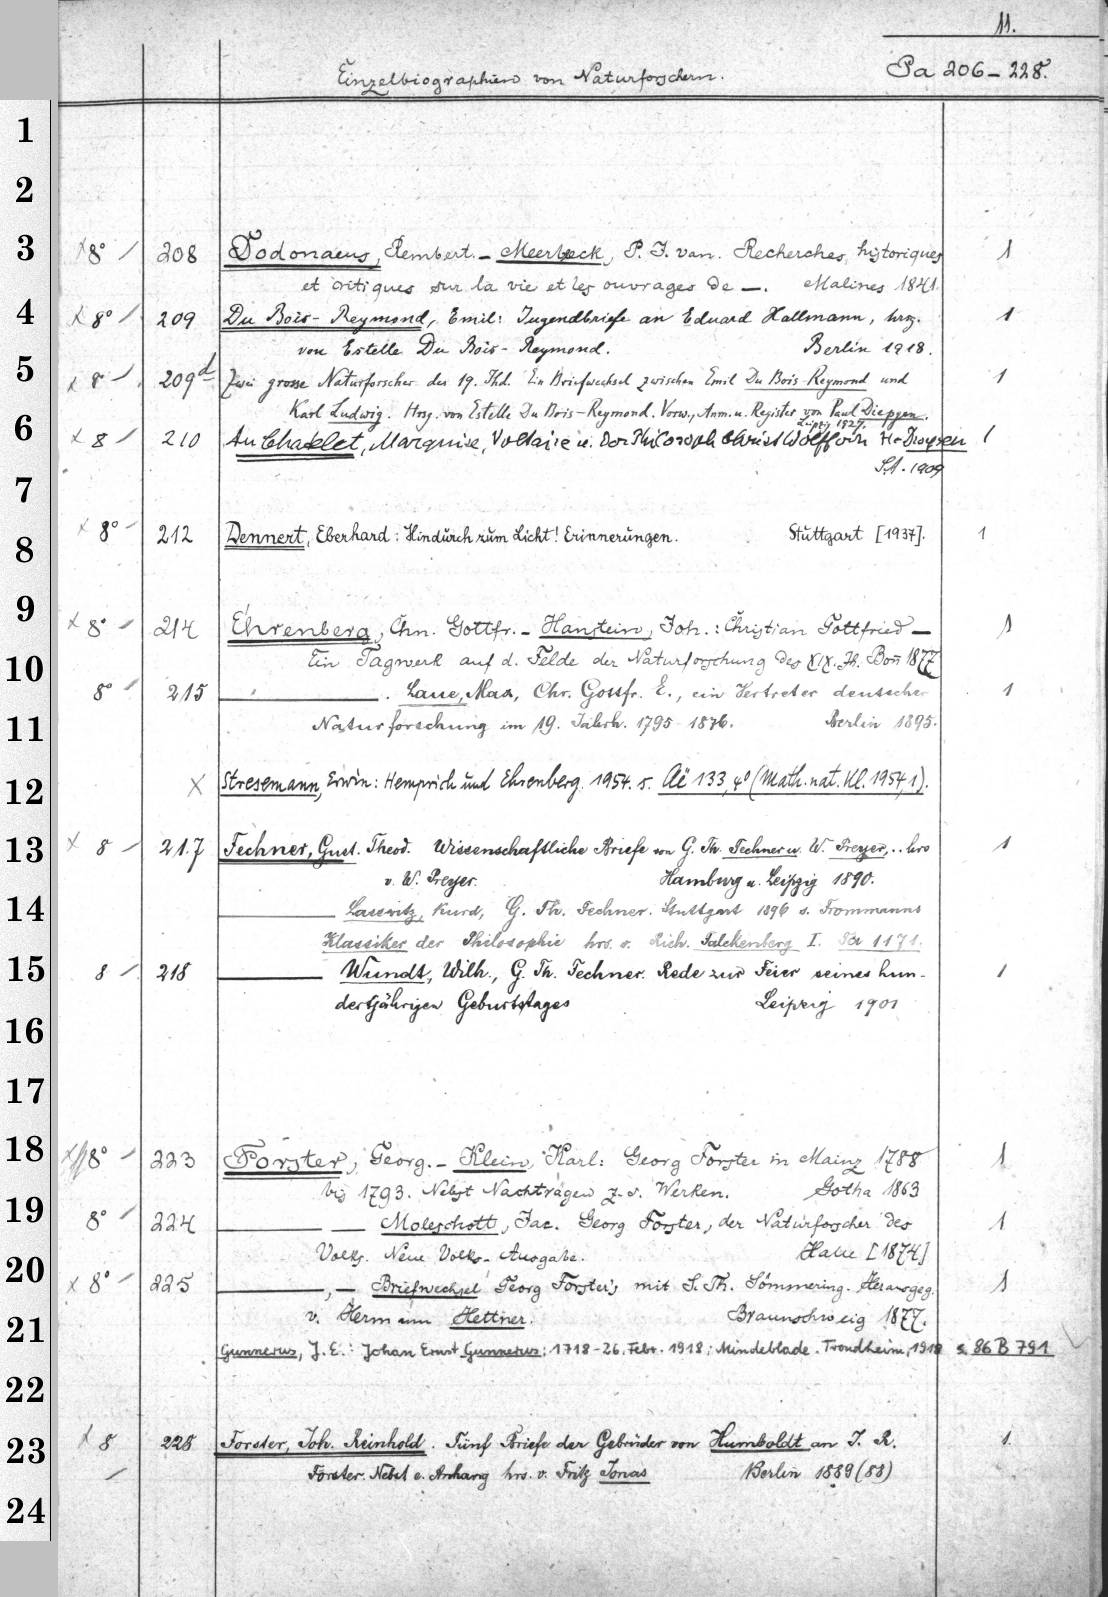 11.
Einzelbiographien von Naturforschern. Pa 206-228.
1
2
3 8° 208 Dodonaeus, Rembert. - Meerbeck, P. J. van. Recherches historiques 1
et critiques sur la vie et les ouvrages de —. Malines 1841.
4 8° 209 Du Bois-Reymond, Emil: Jugendbriefe an Eduard Hallmann, hrsg. 1
von Estelle Du Bois-Reymond. Berlin 1918.
5 8 209d Zwei grosse Naturforscher des 19. Jhd. Ein Briefwechsel zwischen Emil Du Bois-Reymond und 1
Karl Ludwig. Hrsg. von Estelle Du Bois-Reymond. Vorw., Anm. u. Register von Paul Diepgen.
Leipzig 1927.
6 8 210 Du Chatelet, Marquise, Voltaire u. der Philosoph Christ Wolff von H. Droysen 1
S.A. 1909
7
8 8° 212 Dennert, Eberhard: Hindurch zum Licht! Erinnerungen. Stuttgart [1937]. 1
9 8° 214 Ehrenberg, Chn. Gottfr. - Hanstein, Joh.: Christian Gottfried — 1
Ein Tagwerk auf d. Felde der Naturforschung des XIX. Jh. Bonn 1877
10 8° 215 — . Laue, Max, Chr. Gottfr. E., ein Vertreter deutscher 1
11 Naturforschung im 19. Jahrh. 1795-1876. Berlin 1895.
12 X Stresemann, Erwin: Hemprich und Ehrenberg. 1954. s. Aë 133, 4° (Math.-nat. Kl. 1954, 1).
13 8 217 Fechner, Gust. Theod. Wissenschaftliche Briefe von G. Th. Fechner u. W. Preyer, .. hrs 1
v. W. Preyer. Hamburg u. Leipzig 1890.
14 — Lasswitz, Kurd, G. Th. Fechner. Stuttgart 1896 s. Frommanns
Klassiker der Philosophie hrs. v. Rich. Falckenberg I. 1171.
15 8 218 — Wundt, Wilh., G. Th. Fechner. Rede zur Feier seines hun- 1
dertjährigen Geburtstages Leipzig 1901
16
17
18 8° 223 Forster, Georg. - Klein, Karl: Georg Forster in Mainz 1788 1
bis 1793. Nebst Nachträgen z. s. Werken. Gotha 1863
19 8° 224 — — Moleschott, Jac. Georg Forster, der Naturforscher des 1
Volks. Neue Volks-Ausgabe. Halle [1874]
20 8° 225 —, — Briefwechsel Georg Forster's mit S. Th. Sömmering. Herausgeg. 1
21 v. Hermann Hettner. Braunschweig 1877.
Gunnerus, J. E.: Johan Ernst Gunnerus; 1718-26. Febr. 1918; Mindeblade. Trondheim, 1918 s. 86 B 791
22
23 8 228 Forster, Joh. Reinhold. Fünf Briefe der Gebrüder von Humboldt an J. R. 1
Forster. Nebst e. Anhang hrs. v. Fritz Jonas Berlin 1889 (88)
24